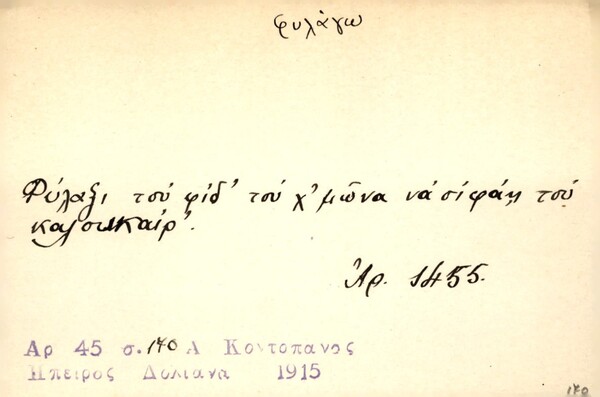 φυλάγω
Φύλαξι τοὺ φίδ' τοὺ χ'μῶνα νὰ σὶ φάῃ τοὺ
καλουκαίρ'.
Ἀρ. 1455.
Αρ 45 σ. 170 Α Κοντοπανος
Ηπειρος Δολιανα 1915
170